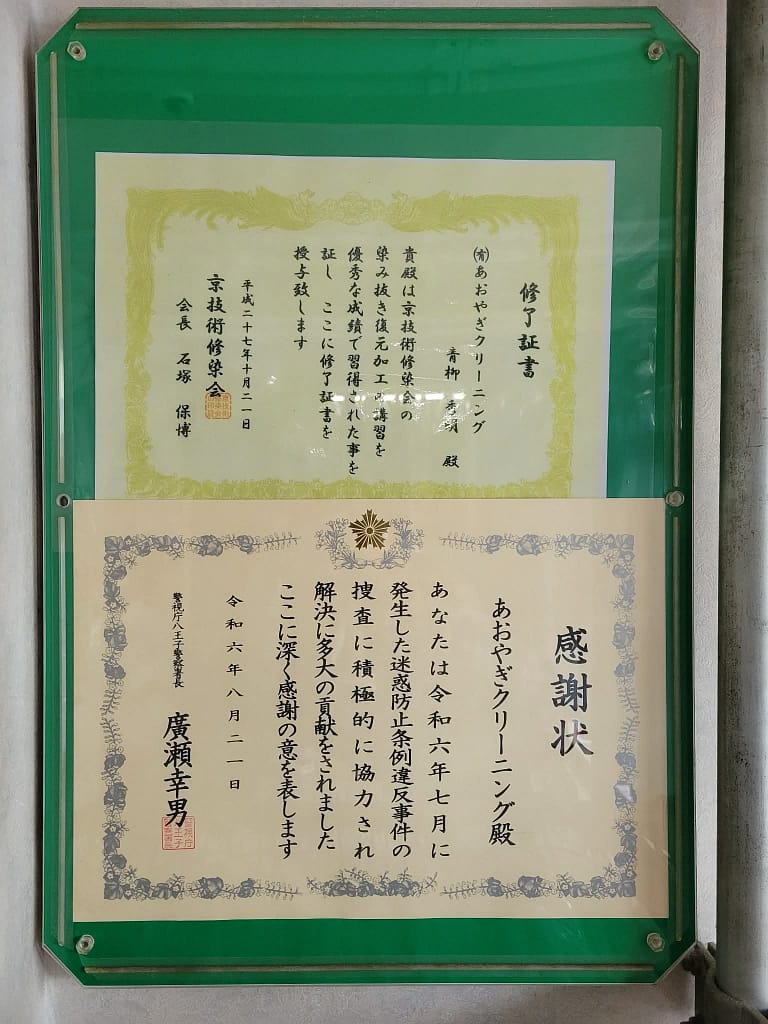 修了証書
㈲あおやぎクリーニング
青柳 秀明 殿
貴殿は京技術修染会の
染み抜き復元加工の講習を
優秀な成績で習得された事を
証し ここに修了証書を
授与致します
平成二十七年十月二一日
京技術修染会
会長 石塚 保博
感謝状
あおやぎクリーニング殿
あなたは令和六年七月に
発生した迷惑防止条例違反事件の
捜査に積極的に協力され
解決に多大の貢献をされました
ここに深く感謝の意を表します
令和六年八月二一日
警視庁八王子警察署長
廣瀬幸男